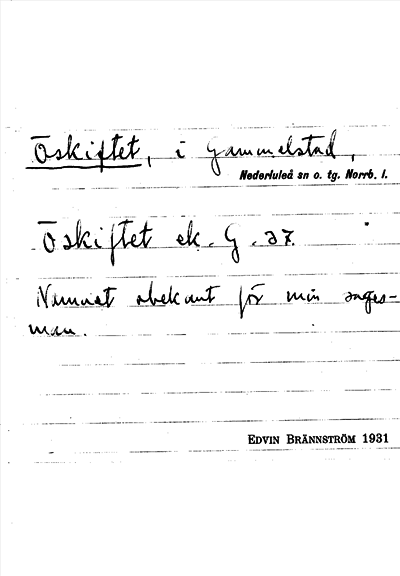 Öskiftet, i Gammelstad,
Nederluleå sn o. tg. Norrb. l.
Öskiftet ek. G. 37.
Namnet obekant för min sages-
man.
EDVIN BRÄNNSTRÖM 1931